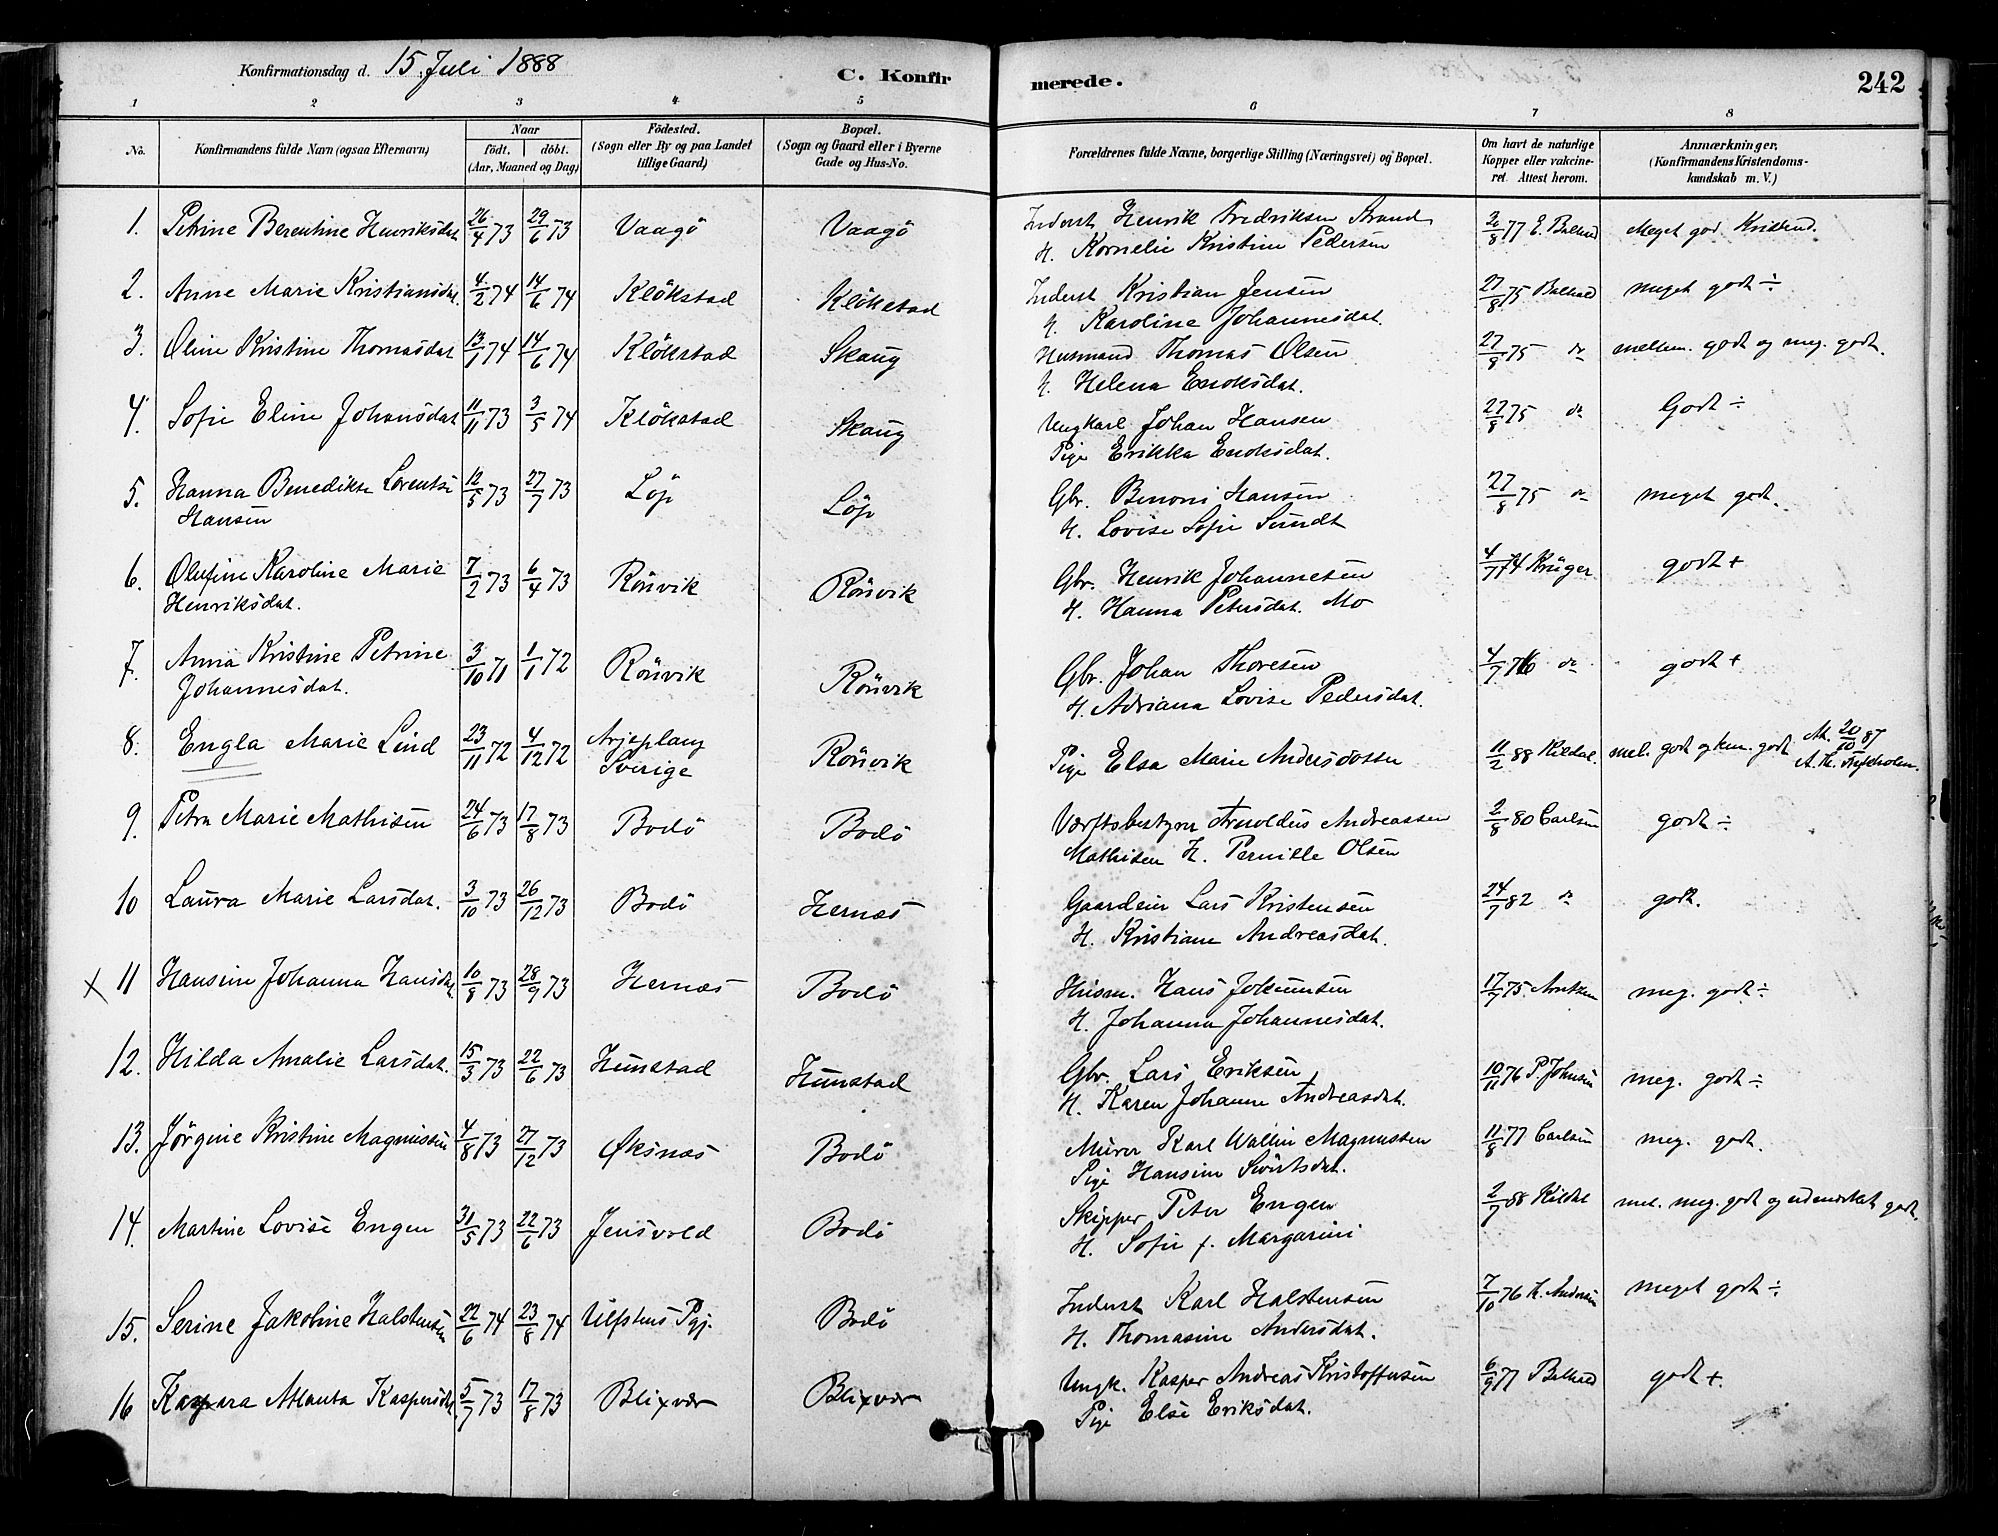 Konfirmationsdag d. 15. Juli 1888 C. Konfirmerede. 242
1 2 3 4 5 6 7 8
No. Konfirmandens fulde Navn (ogsaa Efternavn) Naar födt. döbt. (Aar, Maaned og Dag) Födested. (Sogn eller By og paa Landet tillige Gaard) Bopæl. (Sogn og Gaard eller i Byerne Gade og Hus-No. Forældrenes fulde Navne, borgerlige Stilling (Næringsvei) og Bopæl. Om havt de naturlige Kopper eller vakcineret. Attest herom. Anmærkninger. (Konfirmandens Kristendomskundskab m. V.)
1. Petrine Berentine Henriksdat 26/4 73 29/6 73 Vaagö Vaagö Inderst Henrik Fredriksen Strand 2/8 77 E. Meget god Kristend.
H. Kornelie Kristine Pedersen
2. Anne Marie Kristiansdat. 4/2 74 14/6 74 Klökstad Klökstad Inderst Kristian Jensen 27/8 75 meget godt ÷
H. Karoline Johannesdat.
3. Oline Kristine Thomasdat 13/1 74 14/6 74 Klökstad Skaug Husmand Thomas Olsen 27/8 75 do mellem. godt og meg. godt.
H. Helena Enoksdat.
4. Sofie Eline Johansdat 11/11 73 3/5 74 Klökstad Skaug Ungkarl Johan Hansen 27/8 75 do Godt ÷
Pige Erikka Enoksdat.
5. Hanna Benedikte Lorentse 12/5 73 27/7 73 Löp Löp Gbr. Benoni Hansen 27/8 75 do meget godt.
Hansen H. Lovise Sofie Sundt
6. Olufine Karoline Marie 7/2 73 6/4 73 Rönvik Rönvik Gbr. Henrik Johannesen 4/7 74 Krüger godt +
Henriksdat. H. Hanna Petersdat. Mo
7. Anna Kristine Petrine 3/10 71 1/1 72 Rönvik Rönvik Gbr. Johan Thoresen 4/7 76 do godt +
Johannesdat. H. Adriana Lovise Pedersdat.
8. Engla Marie Lind 23/11 72 4/12 72 Arjeplaug Sverige Rönvik Pige Elsa Marie Andersdotter 11/2 88 Kildal mel. godt og 20/10 87
9. Petra Marie Mathisen 24/6 73 17/8 73 Bodö Bodö Værftsbestyrer Arnoldus Andreassen 2/8 80 Carlsen godt ÷
Mathisen H. Pernille Olsen
10 Laura Marie Larsdat. 3/10 73 26/12 73 Bodö Hernæs Gaardeier Lars Kristensen 24/7 82 do godt.
H. Kristiane Andreasdat.
X 11 Hansine Johanna Hansdat. 10/8 73 28/9 73 Hernæs Bodö Husm. Hans Jokumsen 17/7 75. Arntzen meg. godt ÷
H. Johanna Johannesdat.
12. Hilda Amalie Larsdat. 15/3 73 22/6 73 Hunstad Hunstad Gbr. Lars Eriksen 10/11 76 P. Johnsen meg. godt ÷
H. Karen Johanne Andreasdat.
13. Jörgine Kristine Magnussen 4/8 73 27/12 73 Øksnæs Bodö Murer Karl Wallin Magnussen 11/8 77 Carlsen meg. godt.
Pige Hansine Sivertsdat.
14. Martine Lovise Engen 31/5 73 22/6 73 Jensvold Bodö Skipper Peter Engen 2/7 88 Kildal mel. meg. godt og udmærket godt.
H. Sofie f. Margarini
15. Serine Jakoline Halstensen 22/6 74 23/8 74 Ulfstens Pgj. Bodö Inderst Karl Halstensen 7/10 76 H. Andersen meget godt ÷
H. Thomasine Andersdat.
16 Kaspara Atlanta Kaspersdat. 5/7 73 17/8 73 Blixvær Blixvær Ungk. Kasper Andreas Kristoffersen 6/9 77 godt +.
Pige Else Eriksdat.